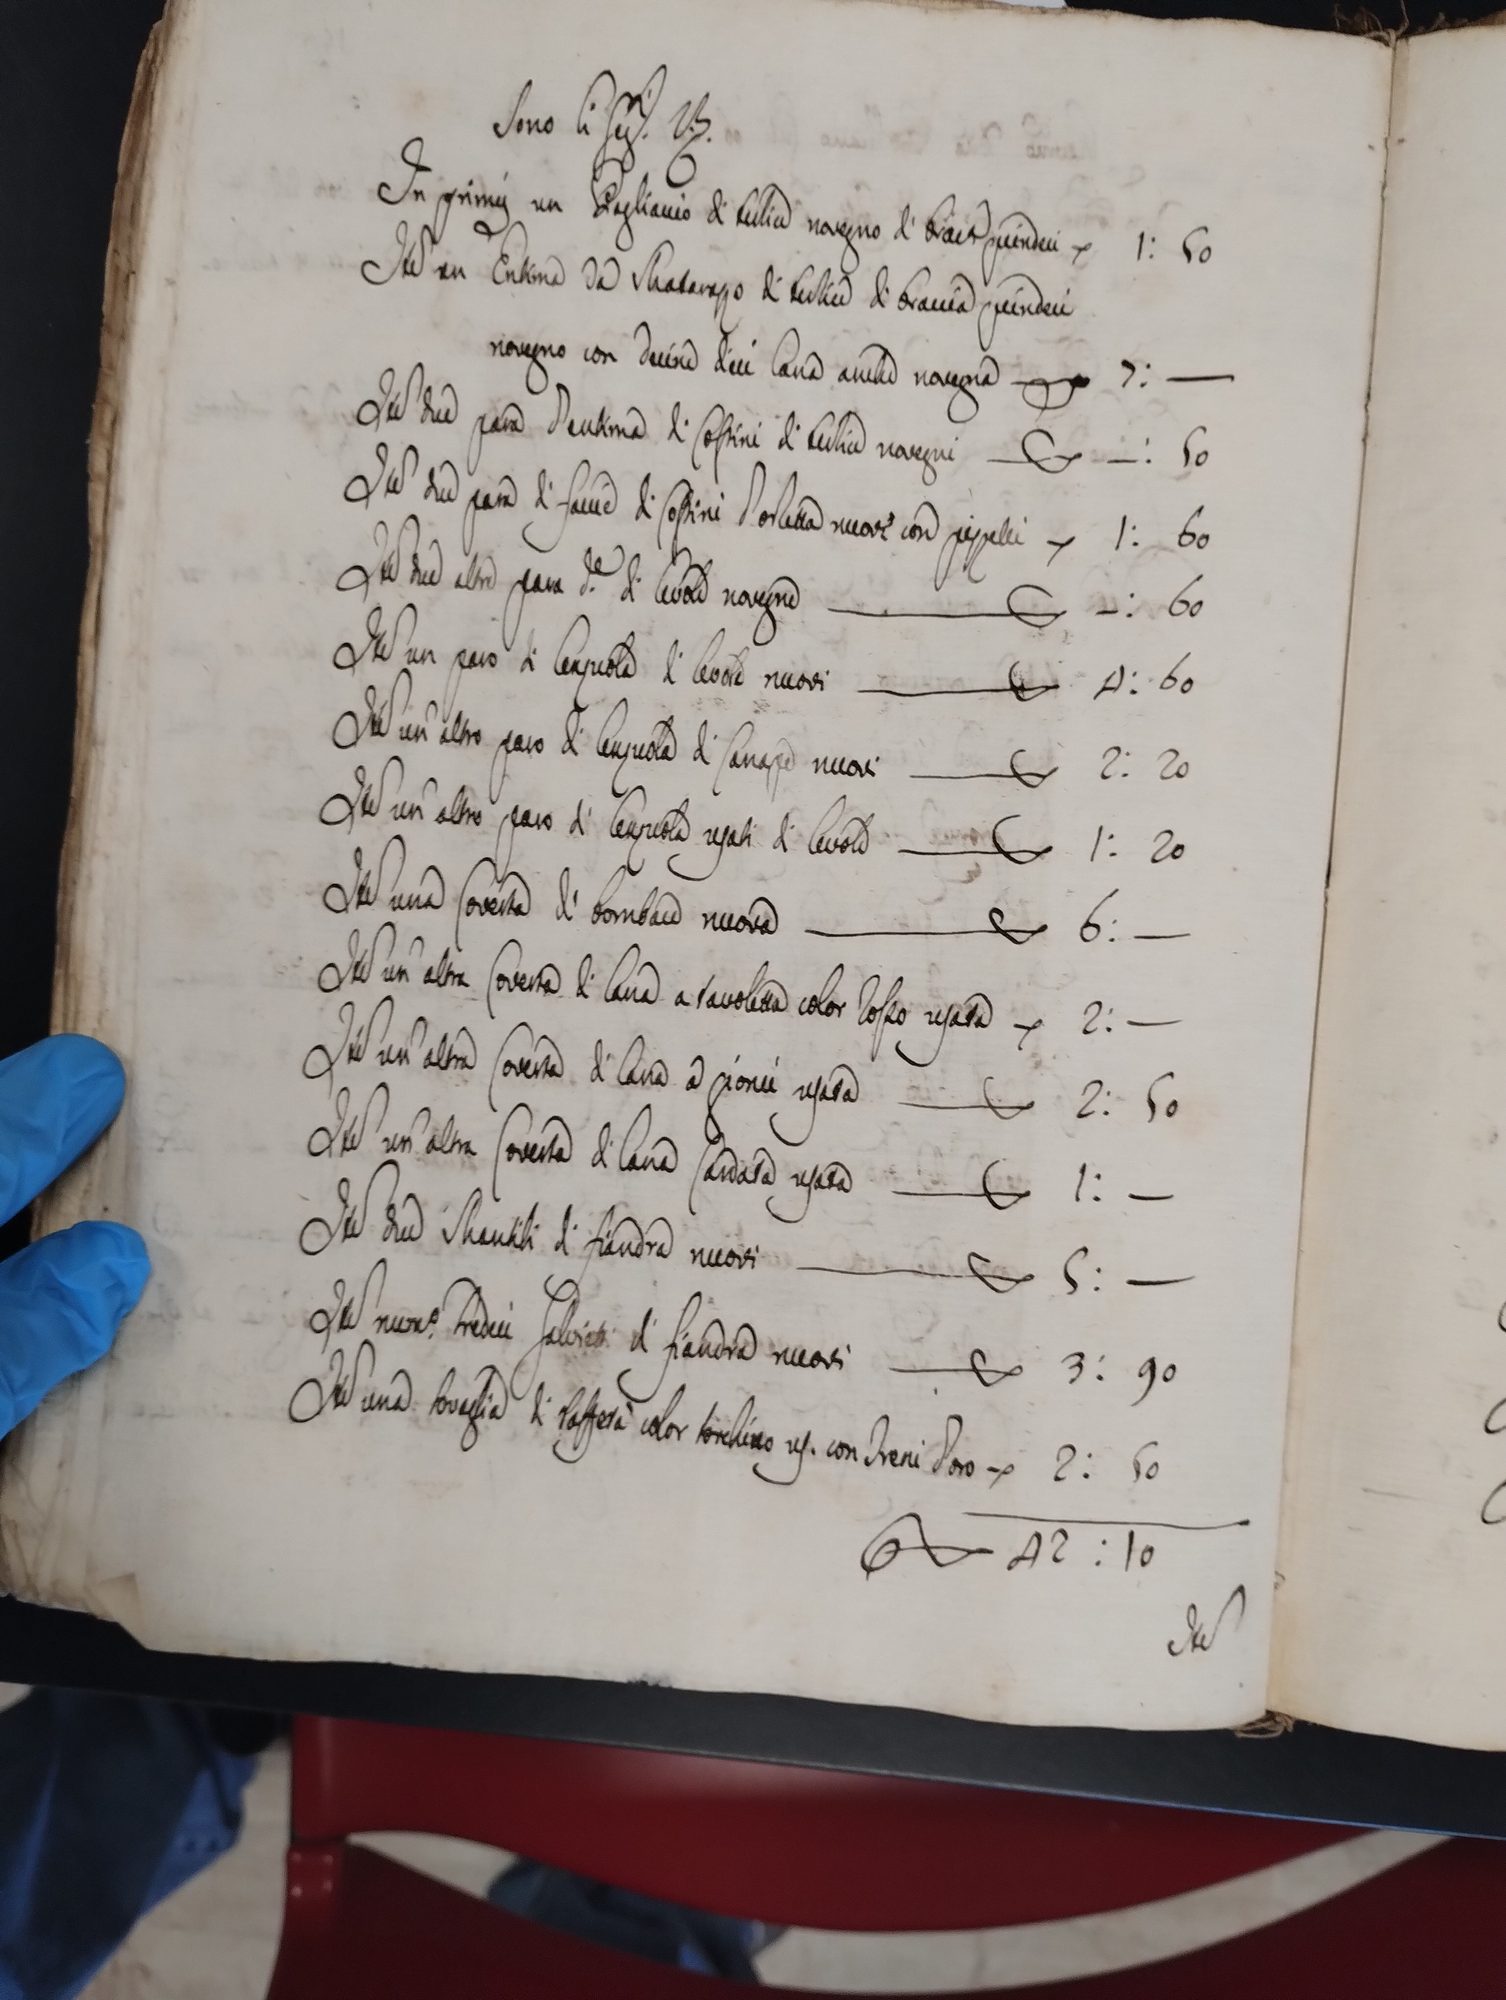 Sono li seg.ti V3.
In primis un Pagliaccio di terlice novegno di braccia quindeci 1: 50
Ite un Entima da Matarazzo di terlice di braccia quindeci
novegno con decine dieci lana anche novegna 7: —
Ite due para d'entima di coscini di terlice novegni —: 50
Ite due para di faccie di coscini d'orletta nuovi con pizzilli 1: 60
Ite due altre para d.e di levole novegne —: 60
Ite un paro di lenzuola di levole nuovi 4: 60
Ite un'altro paro di lenzuola di canape nuovi 2: 20
Ite un'altro paro di lenzuola usati di levole 1: 20
Ite una coverta di bombace nuova 6: —
Ite un'altra coverta di lana a tavoletta color rosso usata 2: —
Ite un'altra coverta di lana a usata 2: 50
Ite un'altra coverta di lana cardata usata 1: —
Ite due Mantili di fiandra nuovi 5: —
Ite num.o tredeci salvietti di fiandra nuovi 3: 90
Ite una tovaglia di taffetà color torchino us. con Treni d'oro 2: 50
42: 10
Ite